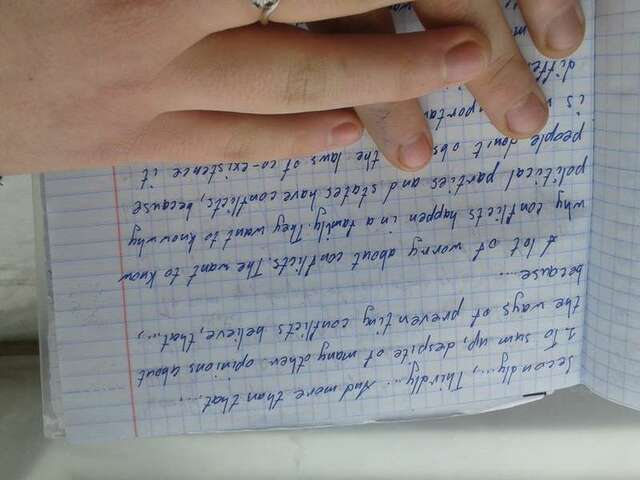 Secondly..., Thirdly... And more than that...,
1. To sum up, despite of many other opinions about
the ways of preventing conflicts believe, that...,
because ....
A lot of worry about conflicts. The want to know
why conflicts happen in a family. They want to know why
political parties and states have conflicts, because
people don't the laws of co-existence it
is